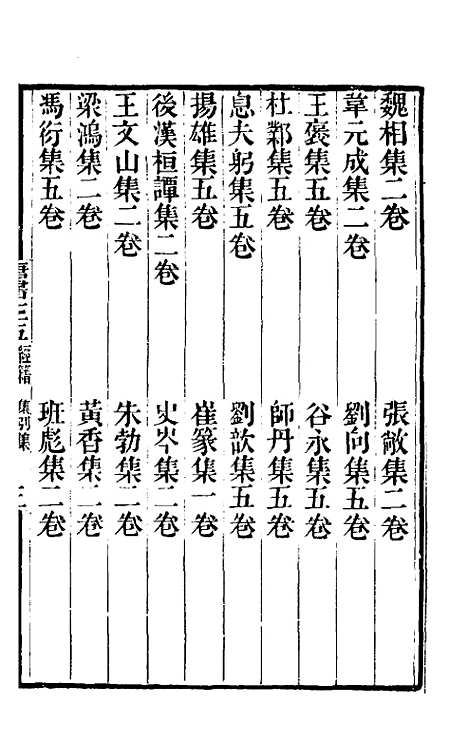 魏相集二卷　張敞集二卷
韋元成集二卷　劉向集五卷
王褒集五卷　谷永集五卷
杜鄴集五卷　師丹集五卷
息夫躬集五卷　劉歆集五卷
揚雄集五卷　崔篆集一卷
後漢桓譚集二卷　史岑集二卷
王文山集二卷　朱勃集二卷
梁鴻集二卷　黃香集二卷
馮衍集五卷　班彪集二卷
經籍　集別集